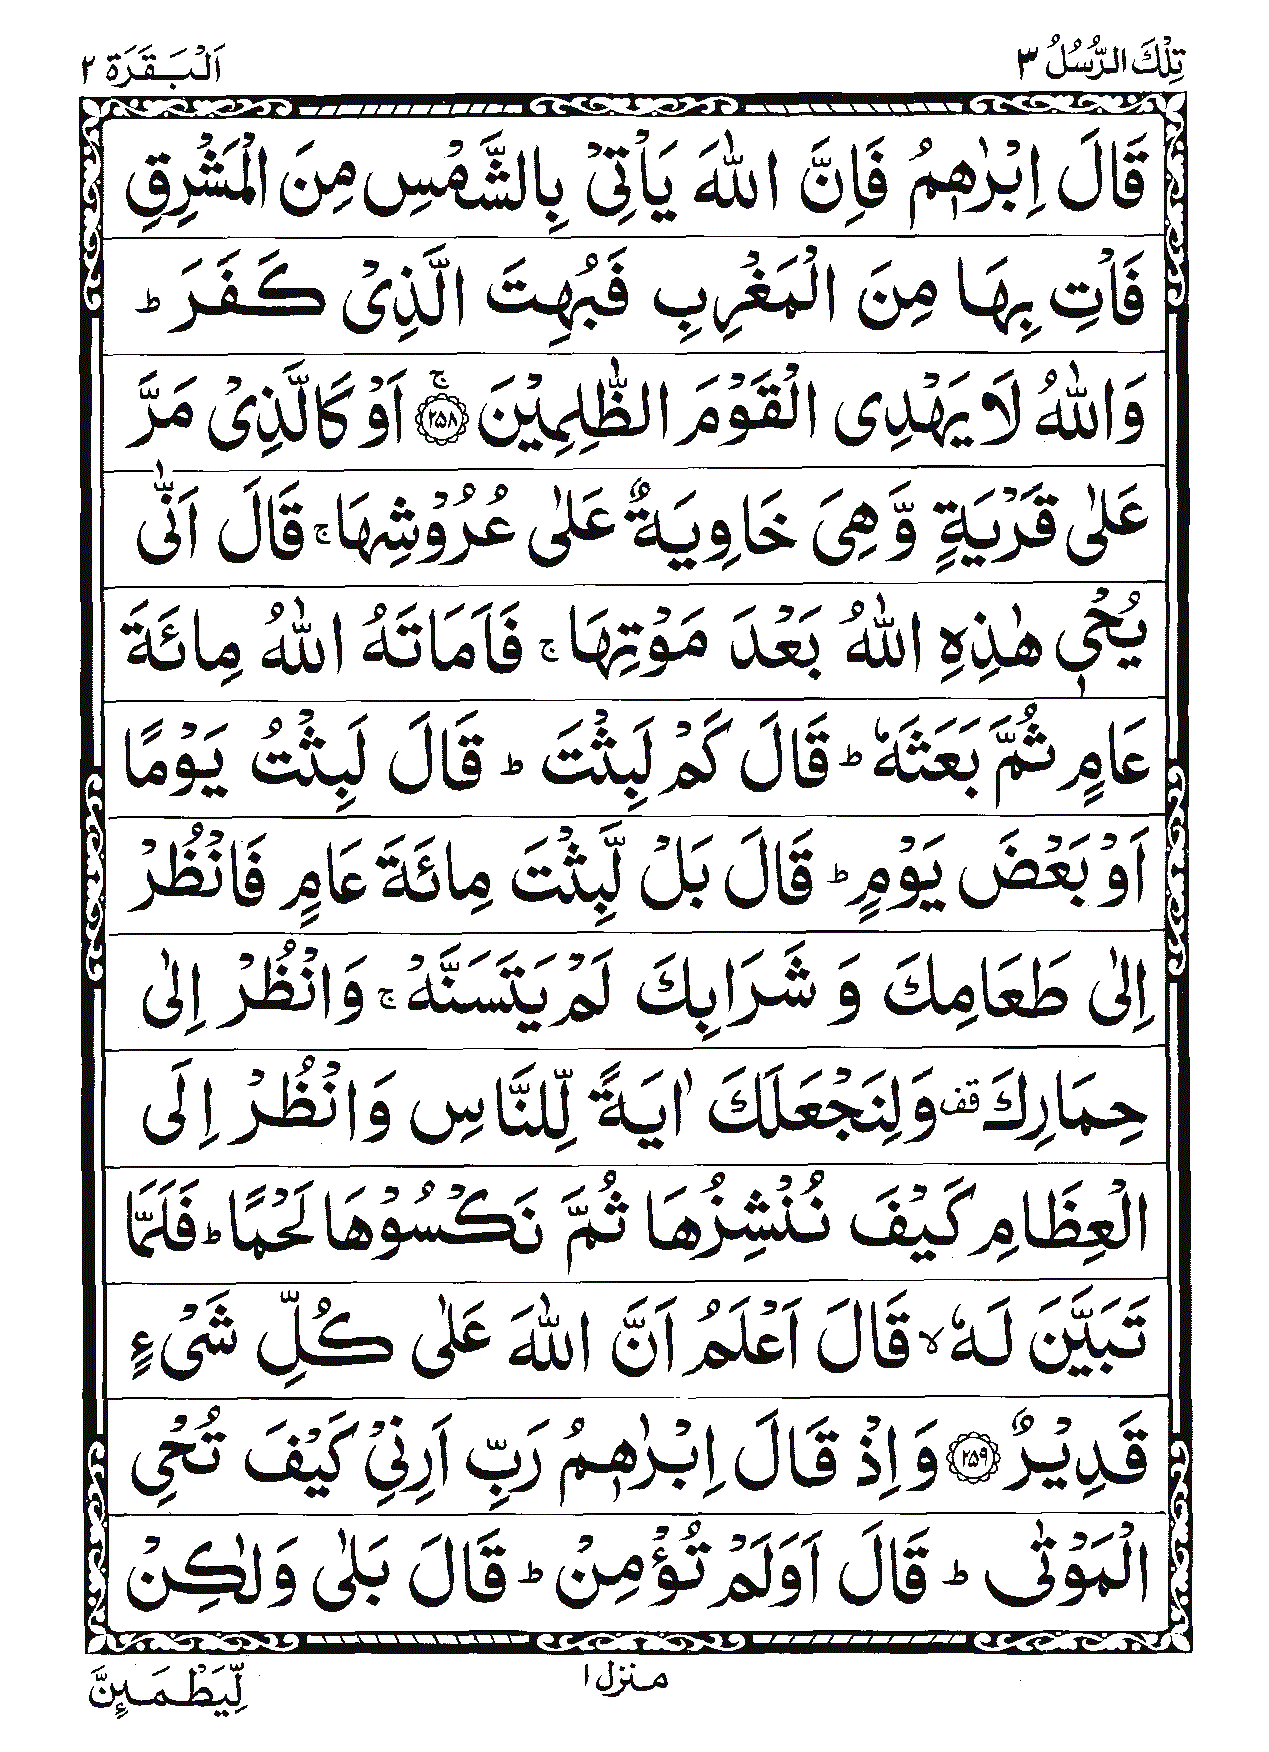 تِلْكَ الرُّسُلُ ٣
اَلْبَقَرَة ٢
قَالَ اِبْرٰهٖمُ فَاِنَّ اللّٰهَ يَاْتِيْ بِالشَّمْسِ مِنَ الْمَشْرِقِ
فَاْتِ بِهَا مِنَ الْمَغْرِبِ فَبُهِتَ الَّذِيْ كَفَرَ ؕ
وَاللّٰهُ لَا يَهْدِى الْقَوْمَ الظّٰلِمِيْنَ ۚ ﴿٢٥٨﴾ اَوْ كَالَّذِيْ مَرَّ
عَلٰى قَرْيَةٍ وَّ هِيَ خَاوِيَةٌ عَلٰى عُرُوْشِهَا ۚ قَالَ اَنّٰى
يُحْيٖ هٰذِهِ اللّٰهُ بَعْدَ مَوْتِهَا ۚ فَاَمَاتَهُ اللّٰهُ مِائَةَ
عَامٍ ثُمَّ بَعَثَهٗ ؕ قَالَ كَمْ لَبِثْتَ ؕ قَالَ لَبِثْتُ يَوْمًا
اَوْ بَعْضَ يَوْمٍ ؕ قَالَ بَلْ لَّبِثْتَ مِائَةَ عَامٍ فَانْظُرْ
اِلٰى طَعَامِكَ وَ شَرَابِكَ لَمْ يَتَسَنَّهْ ۚ وَانْظُرْ اِلٰى
حِمَارِكَ قف وَلِنَجْعَلَكَ اٰيَةً لِّلنَّاسِ وَانْظُرْ اِلَى
الْعِظَامِ كَيْفَ نُنْشِزُهَا ثُمَّ نَكْسُوْهَا لَحْمًا ؕ فَلَمَّا
تَبَيَّنَ لَهٗ ۙ قَالَ اَعْلَمُ اَنَّ اللّٰهَ عَلٰى كُلِّ شَيْءٍ
قَدِيْرٌ ﴿٢٥٩﴾ وَ اِذْ قَالَ اِبْرٰهٖمُ رَبِّ اَرِنِيْ كَيْفَ تُحْيِ
الْمَوْتٰى ؕ قَالَ اَوَلَمْ تُؤْمِنْ ؕ قَالَ بَلٰى وَلٰكِنْ
منزل ١
لِّيَطْمَىِٕنَّ